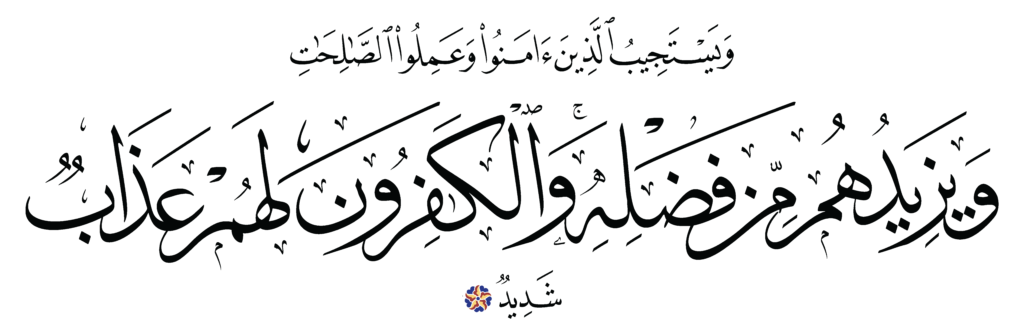 وَيَسْتَجِيبُ ٱلَّذِينَ ءَامَنُوا۟ وَعَمِلُوا۟ ٱلصَّـٰلِحَـٰتِ
وَيَزِيدُهُم مِّن فَضْلِهِۦ ۚ وَٱلْكَـٰفِرُونَ لَهُمْ عَذَابٌ
شَدِيدٌ